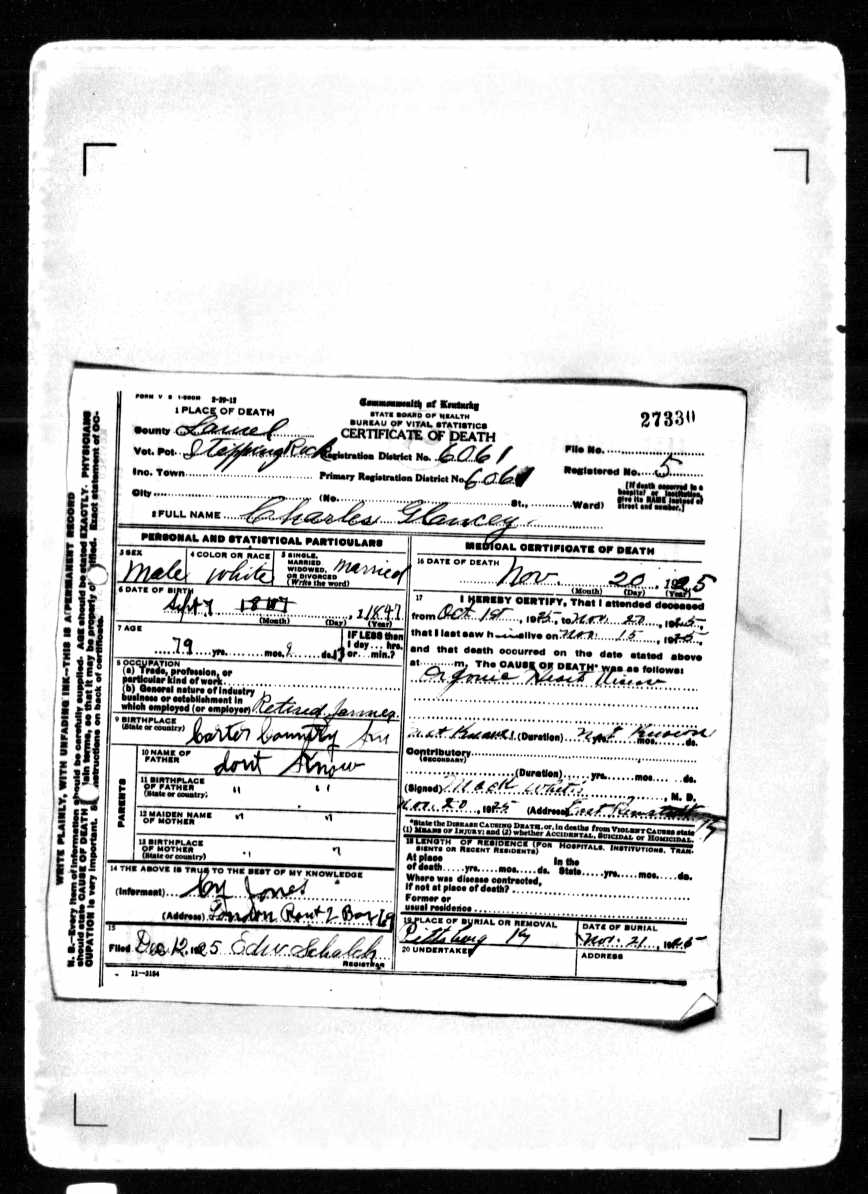 FORM V S 1-500M 2-20-12
1 PLACE OF DEATH
Commonwealth of Kentucky
STATE BOARD OF HEALTH
BUREAU OF VITAL STATISTICS
CERTIFICATE OF DEATH
27330
County Laurel
Vot. Pct. Stepping Rock Registration District No. 6061 File No.
Inc. Town Primary Registration District No. 6061 Registered No. 5
City (No. St., Ward)
[If death occurred in a
hospital or institution,
give its NAME instead of
street and number.]
2 FULL NAME Charles Glancey
PERSONAL AND STATISTICAL PARTICULARS
3 SEX
Male
4 COLOR OR RACE
white
5 SINGLE,
MARRIED
WIDOWED,
OR DIVORCED
(Write the word)
married
6 DATE OF BIRTH
Sept 7 1847
(Month) (Day) (Year)
7 AGE
79 yrs. mos. 9 ds. 13
IF LESS than
1 day hrs.
or min.?
8 OCCUPATION
(a) Trade, profession, or
particular kind of work
(b) General nature of industry
business or establishment in
which employed (or employer) Retired farmer
9 BIRTHPLACE
(State or country) Carter Country
PARENTS
10 NAME OF
FATHER dont Know
11 BIRTHPLACE
OF FATHER
(State or country) " "
12 MAIDEN NAME
OF MOTHER " "
13 BIRTHPLACE
OF MOTHER
(State or country) " "
14 THE ABOVE IS TRUE TO THE BEST OF MY KNOWLEDGE
(Informant) Jones
(Address) London Rout 2 Box 69
15
Filed Dec 12, 1925 Edw Schalch
REGISTRAR
11-3184
MEDICAL CERTIFICATE OF DEATH
16 DATE OF DEATH
Nov. 20, 1925
(Month) (Day) (Year)
17 I HEREBY CERTIFY, That I attended deceased
from Oct 1st, 1925, to Nov. 20, 1925,
that I last saw h alive on Nov. 15, 1925,
and that death occurred on the date stated above
at m, The CAUSE OF DEATH* was as follows:
Organic Heart Disease
not Known (Duration) not Known yrs. mos. ds.
Contributory
(SECONDARY)
(Duration) yrs. mos. ds.
(Signed) Mack White, M. D.
Nov. 20, 1925 (Address) East Bernstadt Ky
*State the DISEASE CAUSING DEATH, or, in deaths from VIOLENT CAUSES state
(1) MEANS OF INJURY; and (2) whether ACCIDENTAL, SUICIDAL or HOMICIDAL.
18 LENGTH OF RESIDENCE (FOR HOSPITALS, INSTITUTIONS, TRAN-
SIENTS OR RECENT RESIDENTS)
At place In the
of death yrs. mos. ds. State yrs. mos. ds.
Where was disease contracted,
if not at place of death?
Former or
usual residence
19 PLACE OF BURIAL OR REMOVAL
Pittsburg Ky
DATE OF BURIAL
Nov. 21, 1925
20 UNDERTAKER
ADDRESS
WRITE PLAINLY, WITH UNFADING INK—THIS IS A PERMANENT RECORD
N. B.—Every item of information should be carefully supplied. AGE should be stated EXACTLY. PHYSICIANS
should state CAUSE OF DEATH in plain terms, so that it may be properly classified. Exact statement of OC-
CUPATION is very important. instructions on back of certificate.